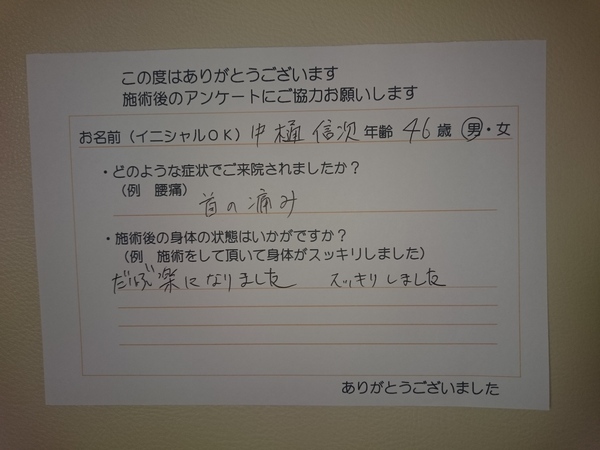 この度はありがとうございます
施術後のアンケートにご協力お願いします
お名前（イニシャルOK）中樋 信次 年齢 46 歳 男・女
・どのような症状でご来院されましたか？
（例　腰痛）
首の痛み
・施術後の身体の状態はいかがですか？
（例　施術をして頂いて身体がスッキリしました）
だいぶ楽になりました　スッキリしました
ありがとうございました